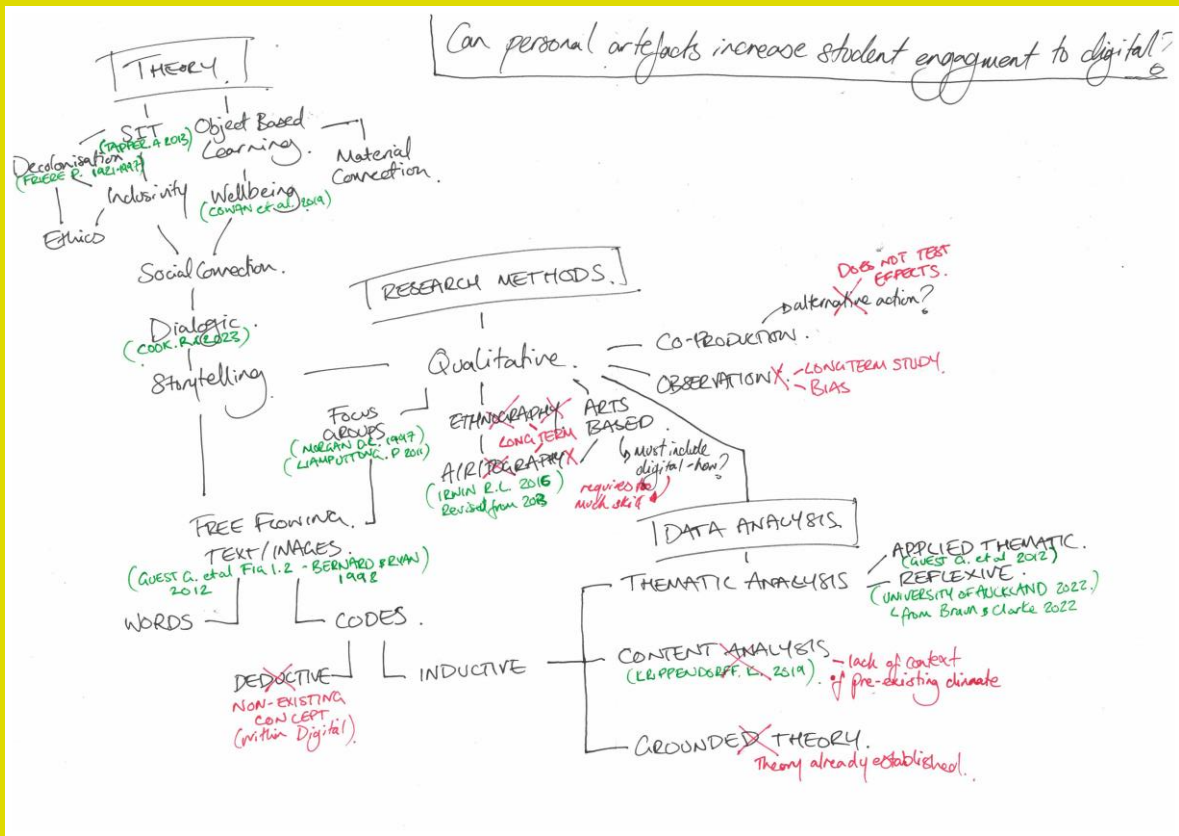 Can personal artefacts increase student engagment to digital?
THEORY.
SIT
(TAPPER. A 2013)
Object Based
Learning.
Decolonisation
(FRIERE P. 1921-1997)
Material
Connection.
Inclusivity
Wellbeing
(COWAN et al. 2019)
Ethics
Social Connection.
Dialogic.
(COOK. R. 2023)
Storytelling
RESEARCH METHODS.
Qualitative.
CO-PRODUCTION.
alternative action?
DOES NOT TEST
EFFECTS.
OBSERVATION X
- LONG TERM STUDY
- BIAS
FOCUS
GROUPS
(MORGAN D.L. 1997)
(LIAMPUTTONG. P 2011)
ETHNOGRAPHY
LONG TERM
A/R/TOGRAPHY X
(IRWIN R.L. 2016
Revised from 2013
ARTS
BASED
must include
digital - how?
requires
much skill
FREE FLOWING
TEXT/IMAGES.
(GUEST G. et al Fig 1.2 - BERNARD & RYAN)
2012
1998
WORDS
CODES.
DEDUCTIVE
NON-EXISTING
CONCEPT
(within Digital)
INDUCTIVE
DATA ANALYSIS
THEMATIC ANALYSIS
APPLIED THEMATIC.
(GUEST G. et al 2012)
REFLEXIVE.
(UNIVERSITY OF AUCKLAND 2022.)
from Braun & Clarke 2022
CONTENT ANALYSIS
(KRIPPENDORFF. K. 2019)
- lack of context
of pre-existing climate
GROUNDED THEORY.
Theory already established.